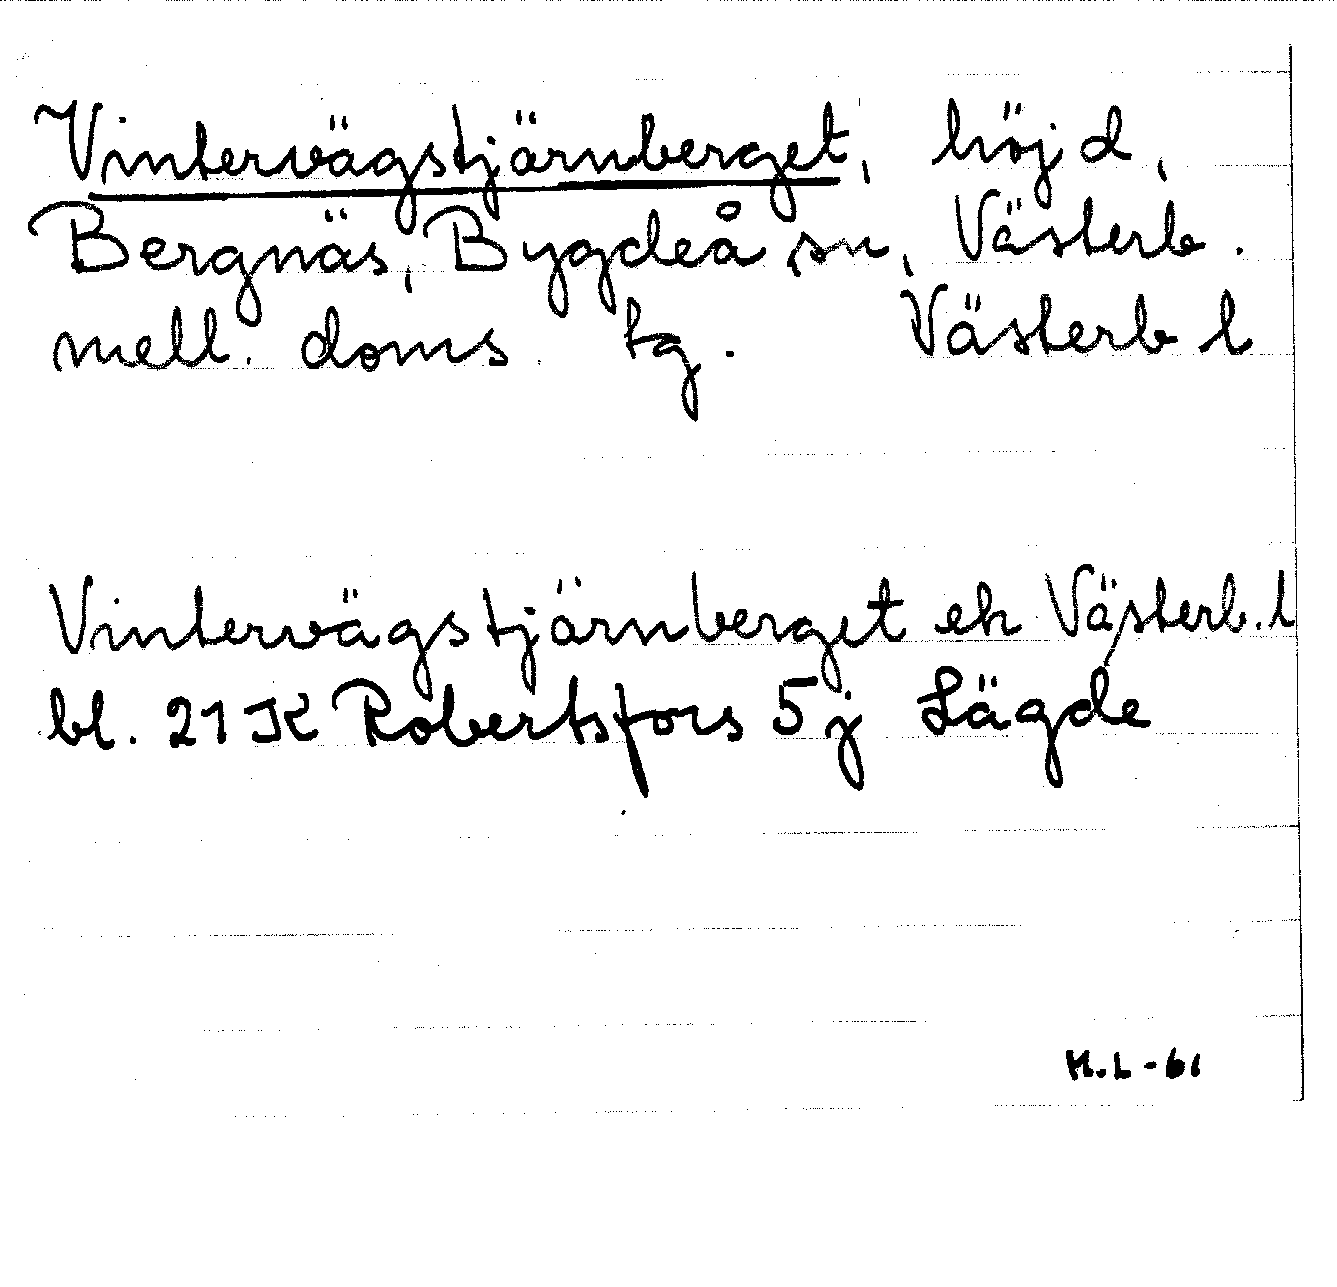 Vintervägstjärnberget, höjd,
Bergnäs, Bygdeå sn, Västerb.
mell. doms. tg. Västerb l
Vintervägstjärnberget ek Västerb. l
bl. 21 K Robertsfors 5 j Lägde
H.L-61